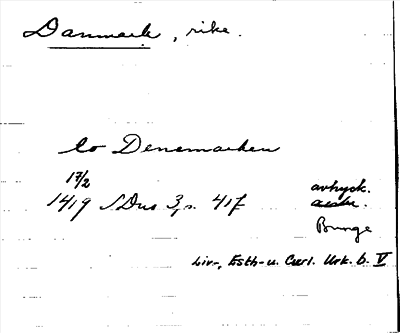 Danmark, rike.
to Denemarken
17/2
1419 SDns 3, s. 417 avtryck.
Bunge
Liv-, Esth- u. Curl. Urk. b. V